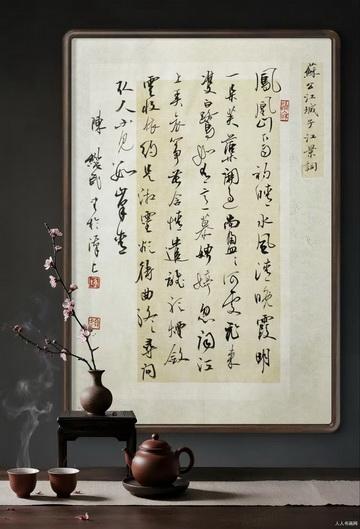 蘇公江城子江景詞
鳳凰山下雨初晴水風清晚霞明
一朵芙蕖開過尚盈盈何處飛來
雙白鷺如有意慕娉婷忽聞江
上弄哀箏苦含情遣誰聽煙斂
雲收依約是湘靈欲待曲終尋問
取人不見數峰青
陳 民
人人书画网